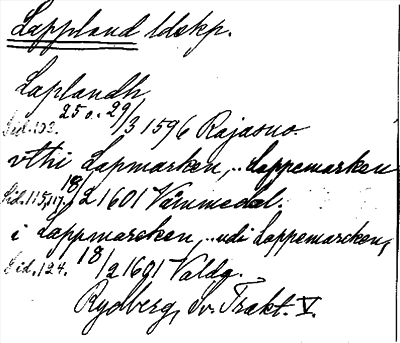 Lappland ldskp.
Laplandh
Sid. 103. 25 o. 29/3 1596 Rajasuo.
vthi Lapmarken, .. Lappemarken
Sid. 115, 117. 18/2 1601 Vämmedal.
i Lappmarcken, .. udi Lappemarcken,
Sid. 124. 18/2 1601 Valdg.
Rydberg, Sv. Trakt. V.